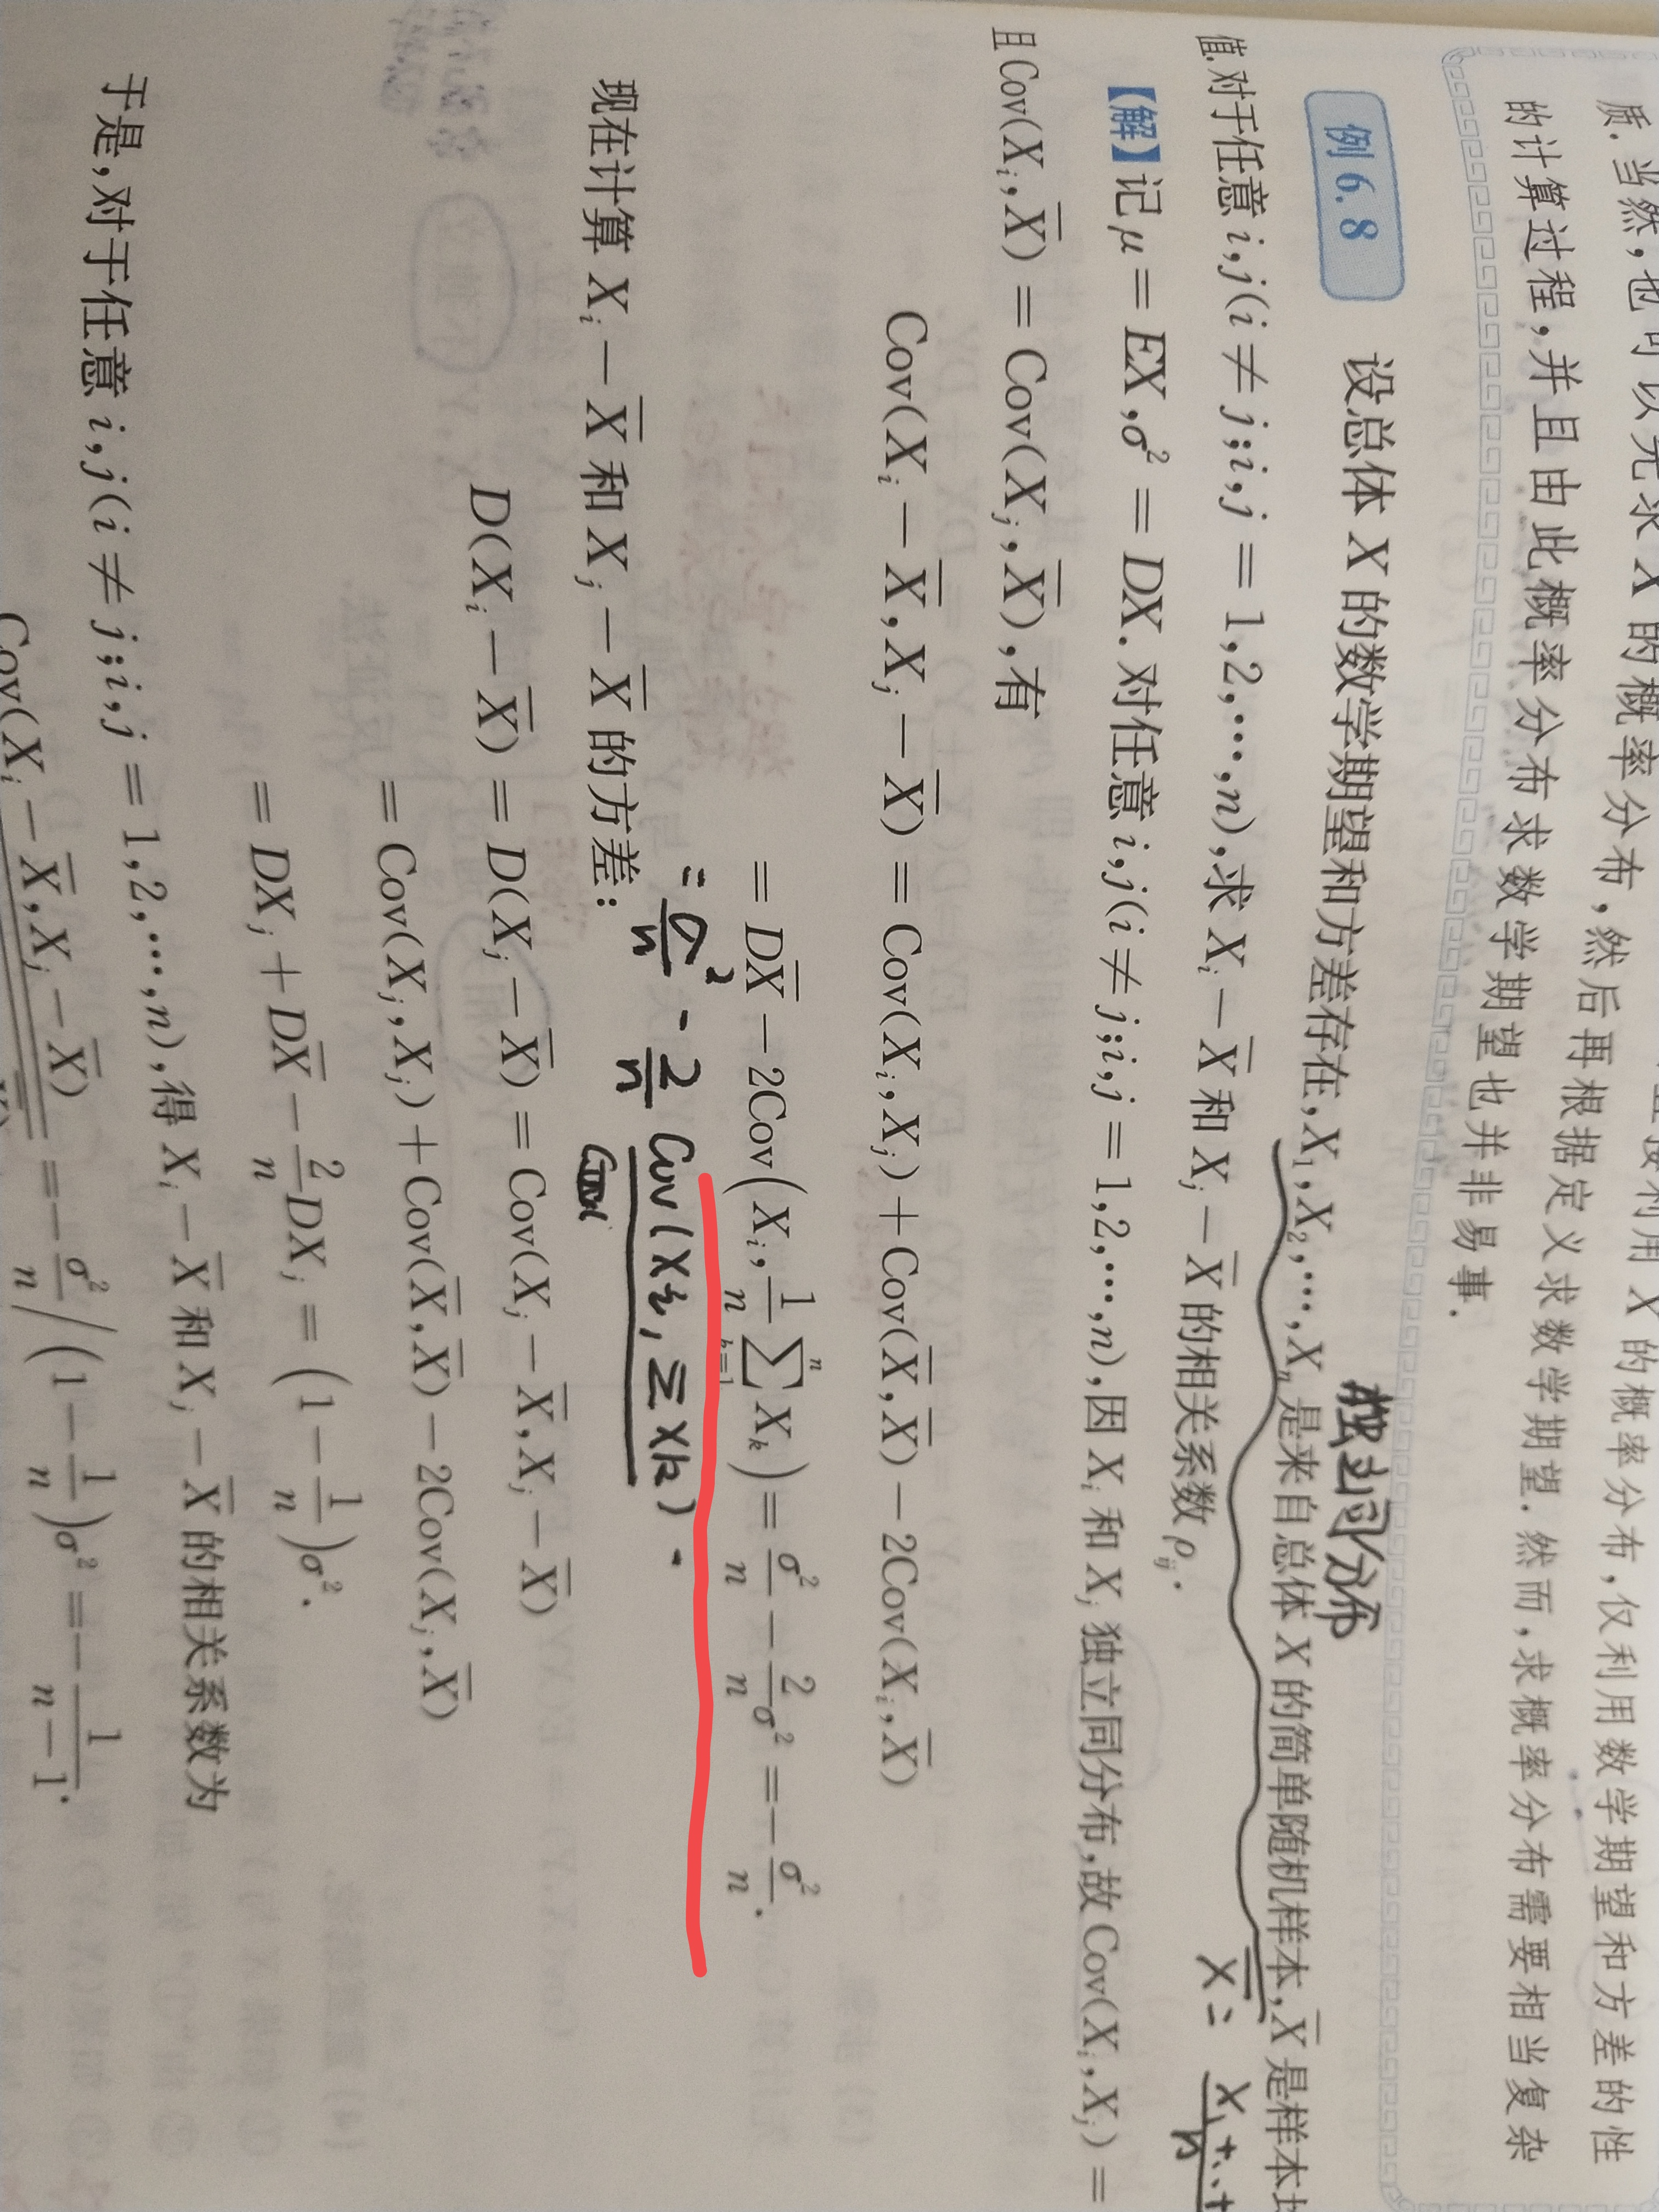 质.当然,也可以先求 X 的概率分布,然后再根据定义求数学期望.然而,求概率分布需要相当复杂
的计算过程,并且由此概率分布求数学期望也并非易事.
独立同分布
例 6.8 设总体 X 的数学期望和方差存在,X₁,X₂,⋯,Xₙ 是来自总体 X 的简单随机样本,X̄ 是样本均
值.对于任意 i,j(i ≠ j;i,j = 1,2,⋯,n),求 Xᵢ − X̄ 和 Xⱼ − X̄ 的相关系数 ρᵢⱼ.
X̄ = X₁+⋯+ / n
【解】记 μ = EX,σ² = DX. 对任意 i,j(i ≠ j;i,j = 1,2,⋯,n),因 Xᵢ 和 Xⱼ 独立同分布,故 Cov(Xᵢ,Xⱼ) =
且 Cov(Xᵢ,X̄) = Cov(Xⱼ,X̄),有
Cov(Xᵢ − X̄,Xⱼ − X̄) = Cov(Xᵢ,Xⱼ) + Cov(X̄,X̄) − 2Cov(Xᵢ,X̄)
= DX̄ − 2Cov(Xᵢ, 1/n ∑ₖ₌₁ⁿ Xₖ) = σ²/n − 2/n σ² = − σ²/n.
= σ²/n - 2/n Cov(Xi, ΣXk).
现在计算 Xᵢ − X̄ 和 Xⱼ − X̄ 的方差:
D(Xᵢ − X̄) = D(Xⱼ − X̄) = Cov(Xⱼ − X̄,Xⱼ − X̄)
= Cov(Xⱼ,Xⱼ) + Cov(X̄,X̄) − 2Cov(Xⱼ,X̄)
= DXⱼ + DX̄ − 2/n DXⱼ = (1 − 1/n)σ².
于是,对于任意 i,j(i ≠ j;i,j = 1,2,⋯,n),得 Xᵢ − X̄ 和 Xⱼ − X̄ 的相关系数为
Cov(Xᵢ − X̄,Xⱼ − X̄) = − σ²/n / (1 − 1/n)σ² = − 1/(n − 1).